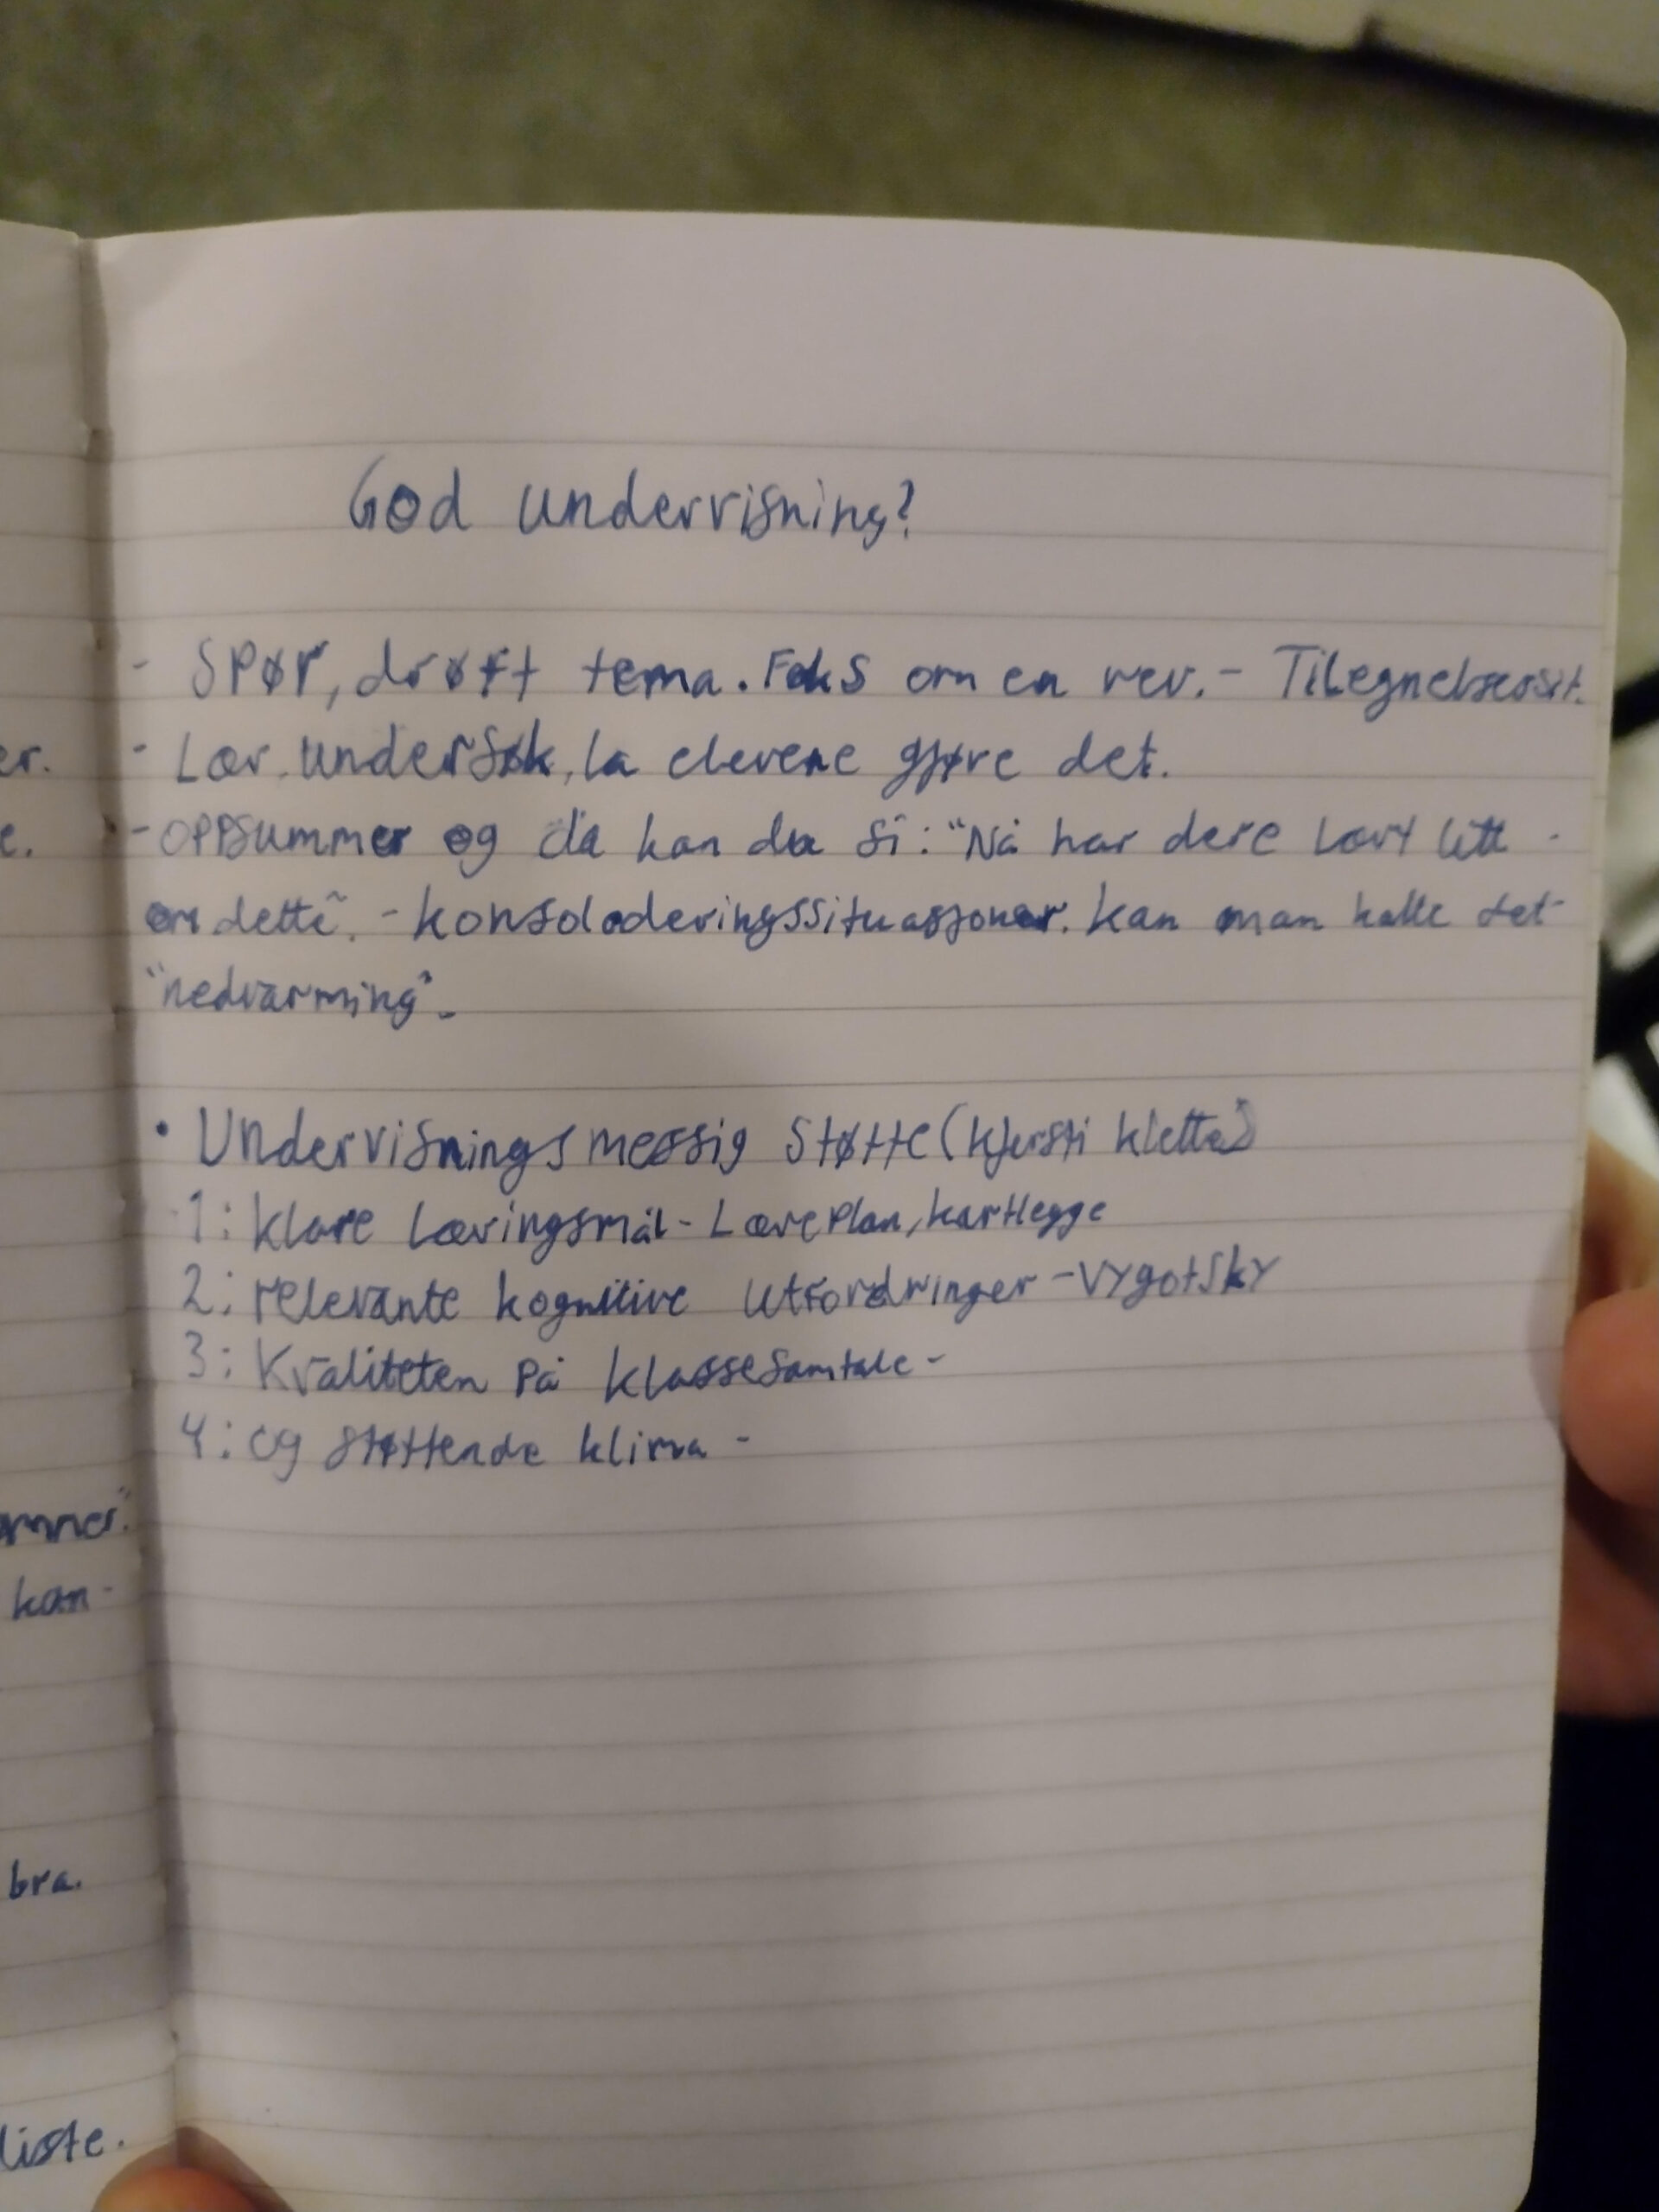 God undervisning?
- Spør, drøft tema. Feks om en rev. - Tilegnelsessit.
er. - Lær, undersøk, la elevene gjøre det.
e. - Oppsummer og da kan du si: "Nå har dere lært litt
om dette". - konsoloderingssituasjoner. kan man kalle det
"nedvarming".
• Undervisningsmessig støtte (kjersti klette)
1: klare læringsmål - Læreplan, kartlegge
2: relevante kognitive utfordringer - Vygotsky
3: Kvaliteten på klassesamtale -
4: og støttende klima -
kan -
bra.
liste.